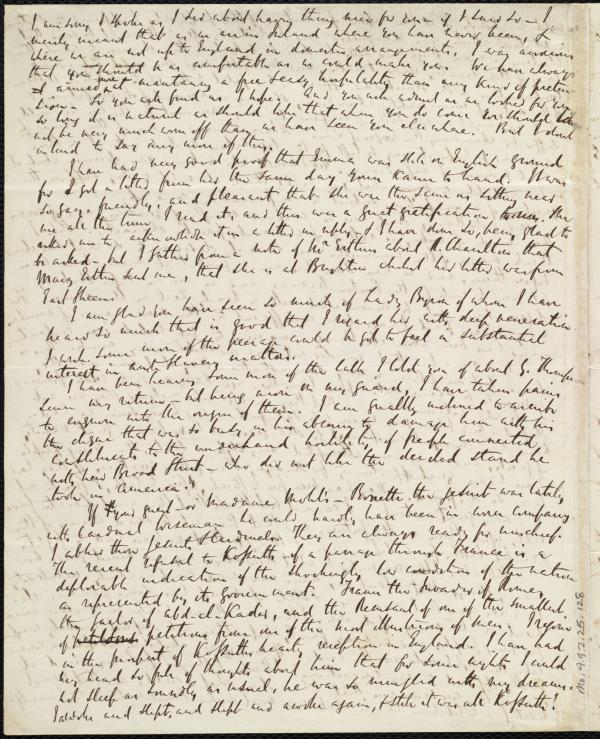 I am sorry I spoke as I did about having things nice for you if I said so – I
merely meant that as we are in Ireland where you have never been, &
there we are not up to England in domestic arrangements, I was anxious
that you should be as comfortable as we could make you. We have always
aimed at maintaining a free & easy hospitality than any kind of preten-
sion. So you will find us I hope. And you will admit we as looked for you
so long it is natural we should wish that when you do come you should
not be very much worse off than we have seen you elsewhere. But I don't
intend to say any more of this.
I have had very good proof that Emma was still on English ground
for I got a letter from her the same day yours came to hand. It was
so gay, friendly, and pleasant that she was the same as sitting near
me all the time I read it, and this was a great gratification. She
asked me to write a letter in reply & I have done so, being glad to
be asked – but I gathered from a note of Mr Estlin's about R. Charlton that
Mary Estlin sent me, that she is at Brighton whilst her letter was from
East Sheen.
I am glad you have seen so much of Lady Byron of whom I have
heard so much that is good that I regard her with deep veneration.
I wish some more of the peerage could be got to feel a substantial
interest in anti slavery matters.
I have been hearing some more of the talk I told you of about G. Thompson
since my return – but being more on my guard, I have taken pains
to enquire into the origin of them. I am greatly inclined to ascribe
the clique that was so busy in his absence to damage him with his
constituents to the underhand hostility of people connected
with New Broad Street – who did not like the decided stand he
took in America.
If your guest – or Madame Mohl's – Bonette the Jesuit was lately
with Cardinal Wiseman he could hardly have been in worse company.
I abhor those Jesuits & Cardinals. They are always ready for mischief.
The recent refusal to Kossuth of a passage through France is a
deplorable indication of the shockingly low condition of the nation
as represented by its government. France the invader of Rome,
the jailor of Abd-el-Kader, and the refusal of one of the smallest
of petitions from one of the most illustrious of men. I rejoice
in the prospect of Kossuth's hearty reception in England. I have had
my head so full of thoughts about him that for some nights I could
not sleep as soundly as usual, he was so mingled with my dreams.
I awoke and slept, and slept and awoke again, & still it was all Kossuth!
Ms. A.9.2.25.128